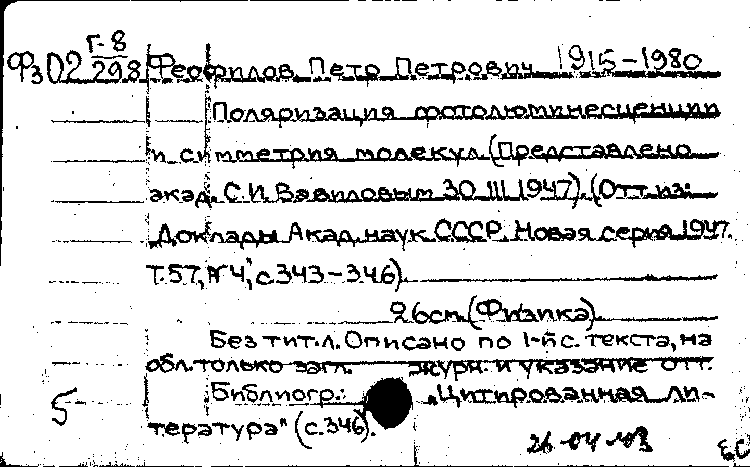 Г-8
Фз02 298 Феофилов Петр Петрович 1915-1980
Поляризация фотолюминесценции
и симметрия молекул. (Представлено
акад. С.И. Вавиловым 30 III 1947). (Отт. из:
"Доклады Акад. наук СССР. Новая серия, 1947.
т.57, №4, с.343-346).
26см. (Физика).
Без тит.л. Описано по 1-й с. текста, на
обл. только загл. журн. и указание отт.
5 Библиогр.: "Цитированная ли-
тература" (с.346).
26-04